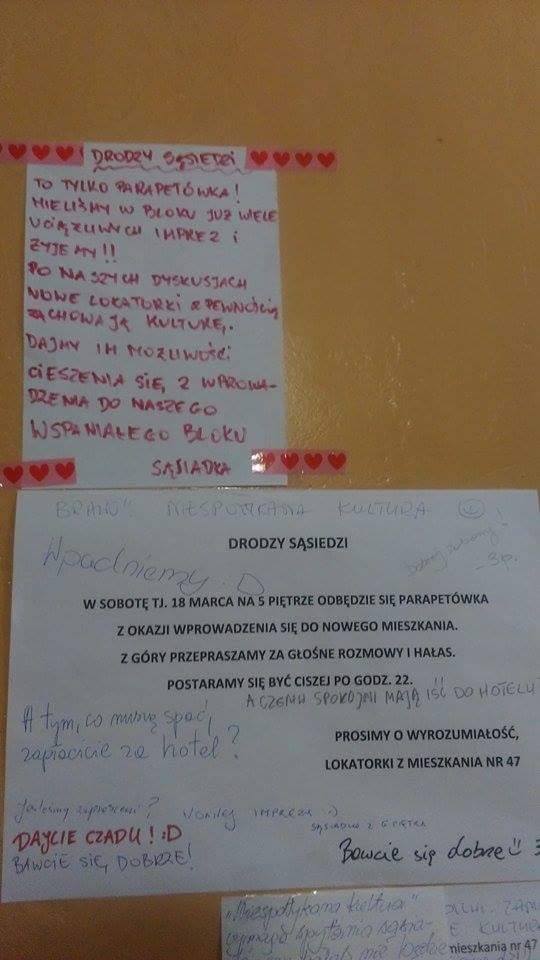 DRODZY SĄSIEDZI
TO TYLKO PARAPETÓWKA!
MIELIŚMY W BLOKU JUŻ WIELE
UCIĄŻLIWYCH IMPREZ I
ŻYJEMY!!
PO NASZYCH DYSKUSJACH
NOWE LOKATORKI Z PEWNOŚCIĄ
ZACHOWAJĄ KULTURĘ.
DAJMY IM MOŻLIWOŚCI
CIESZENIA SIĘ Z WPROWA-
DZENIA DO NASZEGO
WSPANIAŁEGO BLOKU
SĄSIADKA
NIESPOTYKANA KULTURA
DRODZY SĄSIEDZI
Wpadniemy :D
3p.
W SOBOTĘ TJ. 18 MARCA NA 5 PIĘTRZE ODBĘDZIE SIĘ PARAPETÓWKA
Z OKAZJI WPROWADZENIA SIĘ DO NOWEGO MIESZKANIA.
Z GÓRY PRZEPRASZAMY ZA GŁOŚNE ROZMOWY I HAŁAS.
POSTARAMY SIĘ BYĆ CISZEJ PO GODZ. 22.
A CZEMU SPOKOJNI MAJĄ IŚĆ DO HOTELU?
A tym, co muszą spać,
zapłacicie za hotel?
PROSIMY O WYROZUMIAŁOŚĆ,
LOKATORKI Z MIESZKANIA NR 47
Jesteśmy zaproszeni?
IMPREZA :)
DAJCIE CZADU! :D
BAWCIE SIĘ DOBRZE!
Bawcie się dobrze
"Niespotykana kultura"
KULTURA
mieszkania nr 47